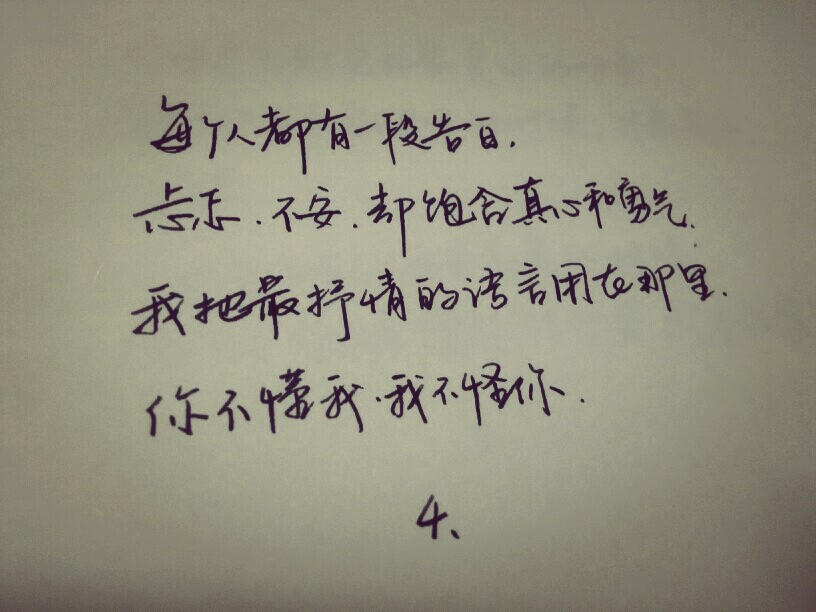 每个人都有一段告白.
忐忑.不安.却饱含真心和勇气.
我把最抒情的语言用在那里.
你不懂我.我不怪你.
4、